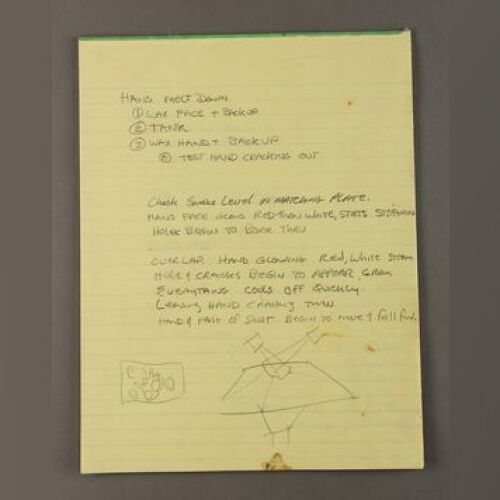 HANS MELT DOWN
① WAX FACE + BACKUP
② TANK
③ WAX HAND + BACKUP
④ TEST HAND CRACKING OUT
Check Smoke Level IN MATCHING PLATE.
HANS FACE GLOWS RED THEN WHITE, STARTS
HOLES BEGIN TO THRU
OVERLAP HAND GLOWING Red, White STEAM
HOLES & CRACKS BEGIN TO APPEAR
EVERYTHING COOLS OFF QUICKLY
LEAVING HAND CRACKING THRU
HAND & PART OF SUIT BEGIN TO MOVE &